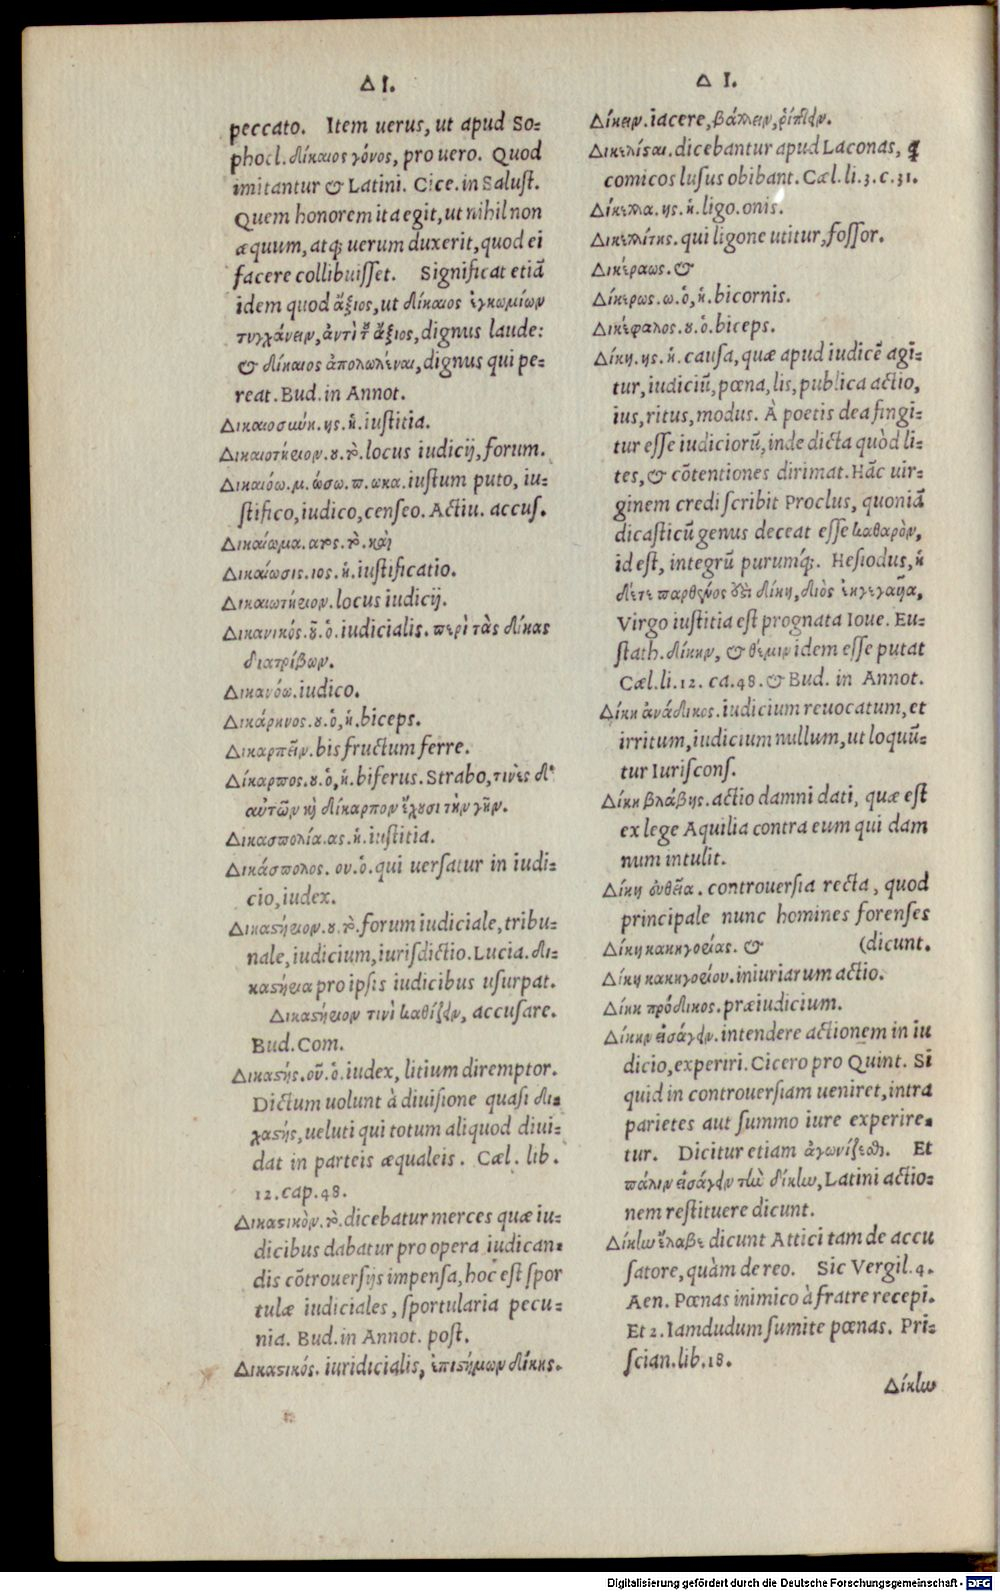 Δ I.
peccato. Item uerus, ut apud So-
phocl. δίκαιος γόνος, pro uero. Quod
imitantur & Latini. Cice. in Salust.
Quem honorem ita egit, ut nihil non
æquum, atq; uerum duxerit, quod ei
facere collibuisset. Significat etiã
idem quod ἄξιος, ut δίκαιος ἐγκωμίων
τυγχάνειν, ἀντὶ τοῦ ἄξιος, dignus laude:
& δίκαιος ἀπολωλέναι, dignus qui pe-
reat. Bud. in Annot.
Δικαιοσύνη. ης. ἡ. iustitia.
Δικαιοτήριον. ου. τὸ. locus iudicij, forum.
Δικαιόω. μ. ώσω. π. ωκα. iustum puto, iu-
stifico, iudico, censeo. Actiu. accus.
Δικαίωμα. ατος. τὸ. καὶ
Δικαίωσις. ιος. ἡ. iustificatio.
Δικαιωτήριον. locus iudicij.
Δικανικός. οῦ. ὁ. iudicialis. περὶ τὰς δίκας
διατρίβων.
Δικανόω. iudico.
Δικάρηνος. ου. ὁ, ἡ. biceps.
Δικαρπεῖν. bis fructum ferre.
Δίκαρπος. ου. ὁ, ἡ. biferus. Strabo, τινὲς δὲ
αὐτῶν καὶ δίκαρπον ἔχουσι τὴν γῆν.
Δικασπολία. ας. ἡ. iustitia.
Δικάσπολος. ου. ὁ. qui uersatur in iudi-
cio, iudex.
Δικαστήριον. ου. τὸ. forum iudiciale, tribu-
nale, iudicium, iurisdictio. Lucia. δι-
καστήρια pro ipsis iudicibus usurpat.
Δικαστήριον τινὶ καθίζειν, accusare.
Bud. Com.
Δικαστής. οῦ. ὁ. iudex, litium diremptor.
Dictum uolunt à diuisione quasi δι-
χαστής, ueluti qui totum aliquod diui-
dat in parteis æqualeis. Cæl. lib.
12. cap. 48.
Δικαστικὸν. τὸ. dicebatur merces quæ iu-
dicibus dabatur pro opera iudican-
dis cõtrouersijs impensa, hoc est spor
tulæ iudiciales, sportularia pecu-
nia. Bud. in Annot. post.
Δικαστικός. iuridicialis, ἐπιστήμων δίκης.
Δ I.
Δίκειν. iacere, βάλλειν, ῥίπτειν.
Δικηλίσται. dicebantur apud Laconas, q
comicos lusus obibant. Cæl. li. 3. c. 31.
Δίκελλα. ης. ἡ. ligo. onis.
Δικελλίτης. qui ligone utitur, fossor.
Δικέραως. &
Δίκερως. ω. ὁ, ἡ. bicornis.
Δικέφαλος. ου. ὁ. biceps.
Δίκη. ης. ἡ. causa, quæ apud iudicẽ agi-
tur, iudiciũ, pœna, lis, publica actio,
ius, ritus, modus. À poetis dea fingi-
tur esse iudiciorũ, inde dicta quòd li-
tes, & cõtentiones dirimat. Hãc uir-
ginem credi scribit Proclus, quoniã
dicasticũ genus deceat esse καθαρὸν,
id est, integrũ purumq́;. Hesiodus, ἡ
δέ τε παρθένος ἐστὶ δίκη, διὸς ἐκγεγαυῖα,
Virgo iustitia est prognata Ioue. Eu-
stath. δίκην, & θέμιν idem esse putat
Cæl. li. 12. ca. 48. & Bud. in Annot.
Δίκη ἀνάδικος. iudicium reuocatum, et
irritum, iudicium nullum, ut loquũ-
tur Iurisconſ.
Δίκη βλάβης. actio damni dati, quæ est
ex lege Aquilia contra eum qui dam
num intulit.
Δίκη εὐθεῖα. controuersia recta, quod
principale nunc homines forenses
Δίκη κακηγορίας. & (dicunt.
Δίκη κακηγορίου. iniuriarum actio.
Δίκη πρόδικος. præiudicium.
Δίκην εἰσάγειν. intendere actionem in iu
dicio, experiri. Cicero pro Quint. Si
quid in controuersiam ueniret, intra
parietes aut summo iure experire-
tur. Dicitur etiam ἀγωνίζεσθαι. Et
πάλιν εἰσάγειν τὴν δίκην, Latini actio-
nem restituere dicunt.
Δίκην ἔλαβε dicunt Attici tam de accu
satore, quàm de reo. Sic Vergil. 4.
Aen. Pœnas inimico à fratre recepi.
Et 2. Iamdudum sumite pœnas. Pri-
scian. lib. 18.
Δίκην
Digitalisierung gefördert durch die Deutsche Forschungsgemeinschaft - DFG